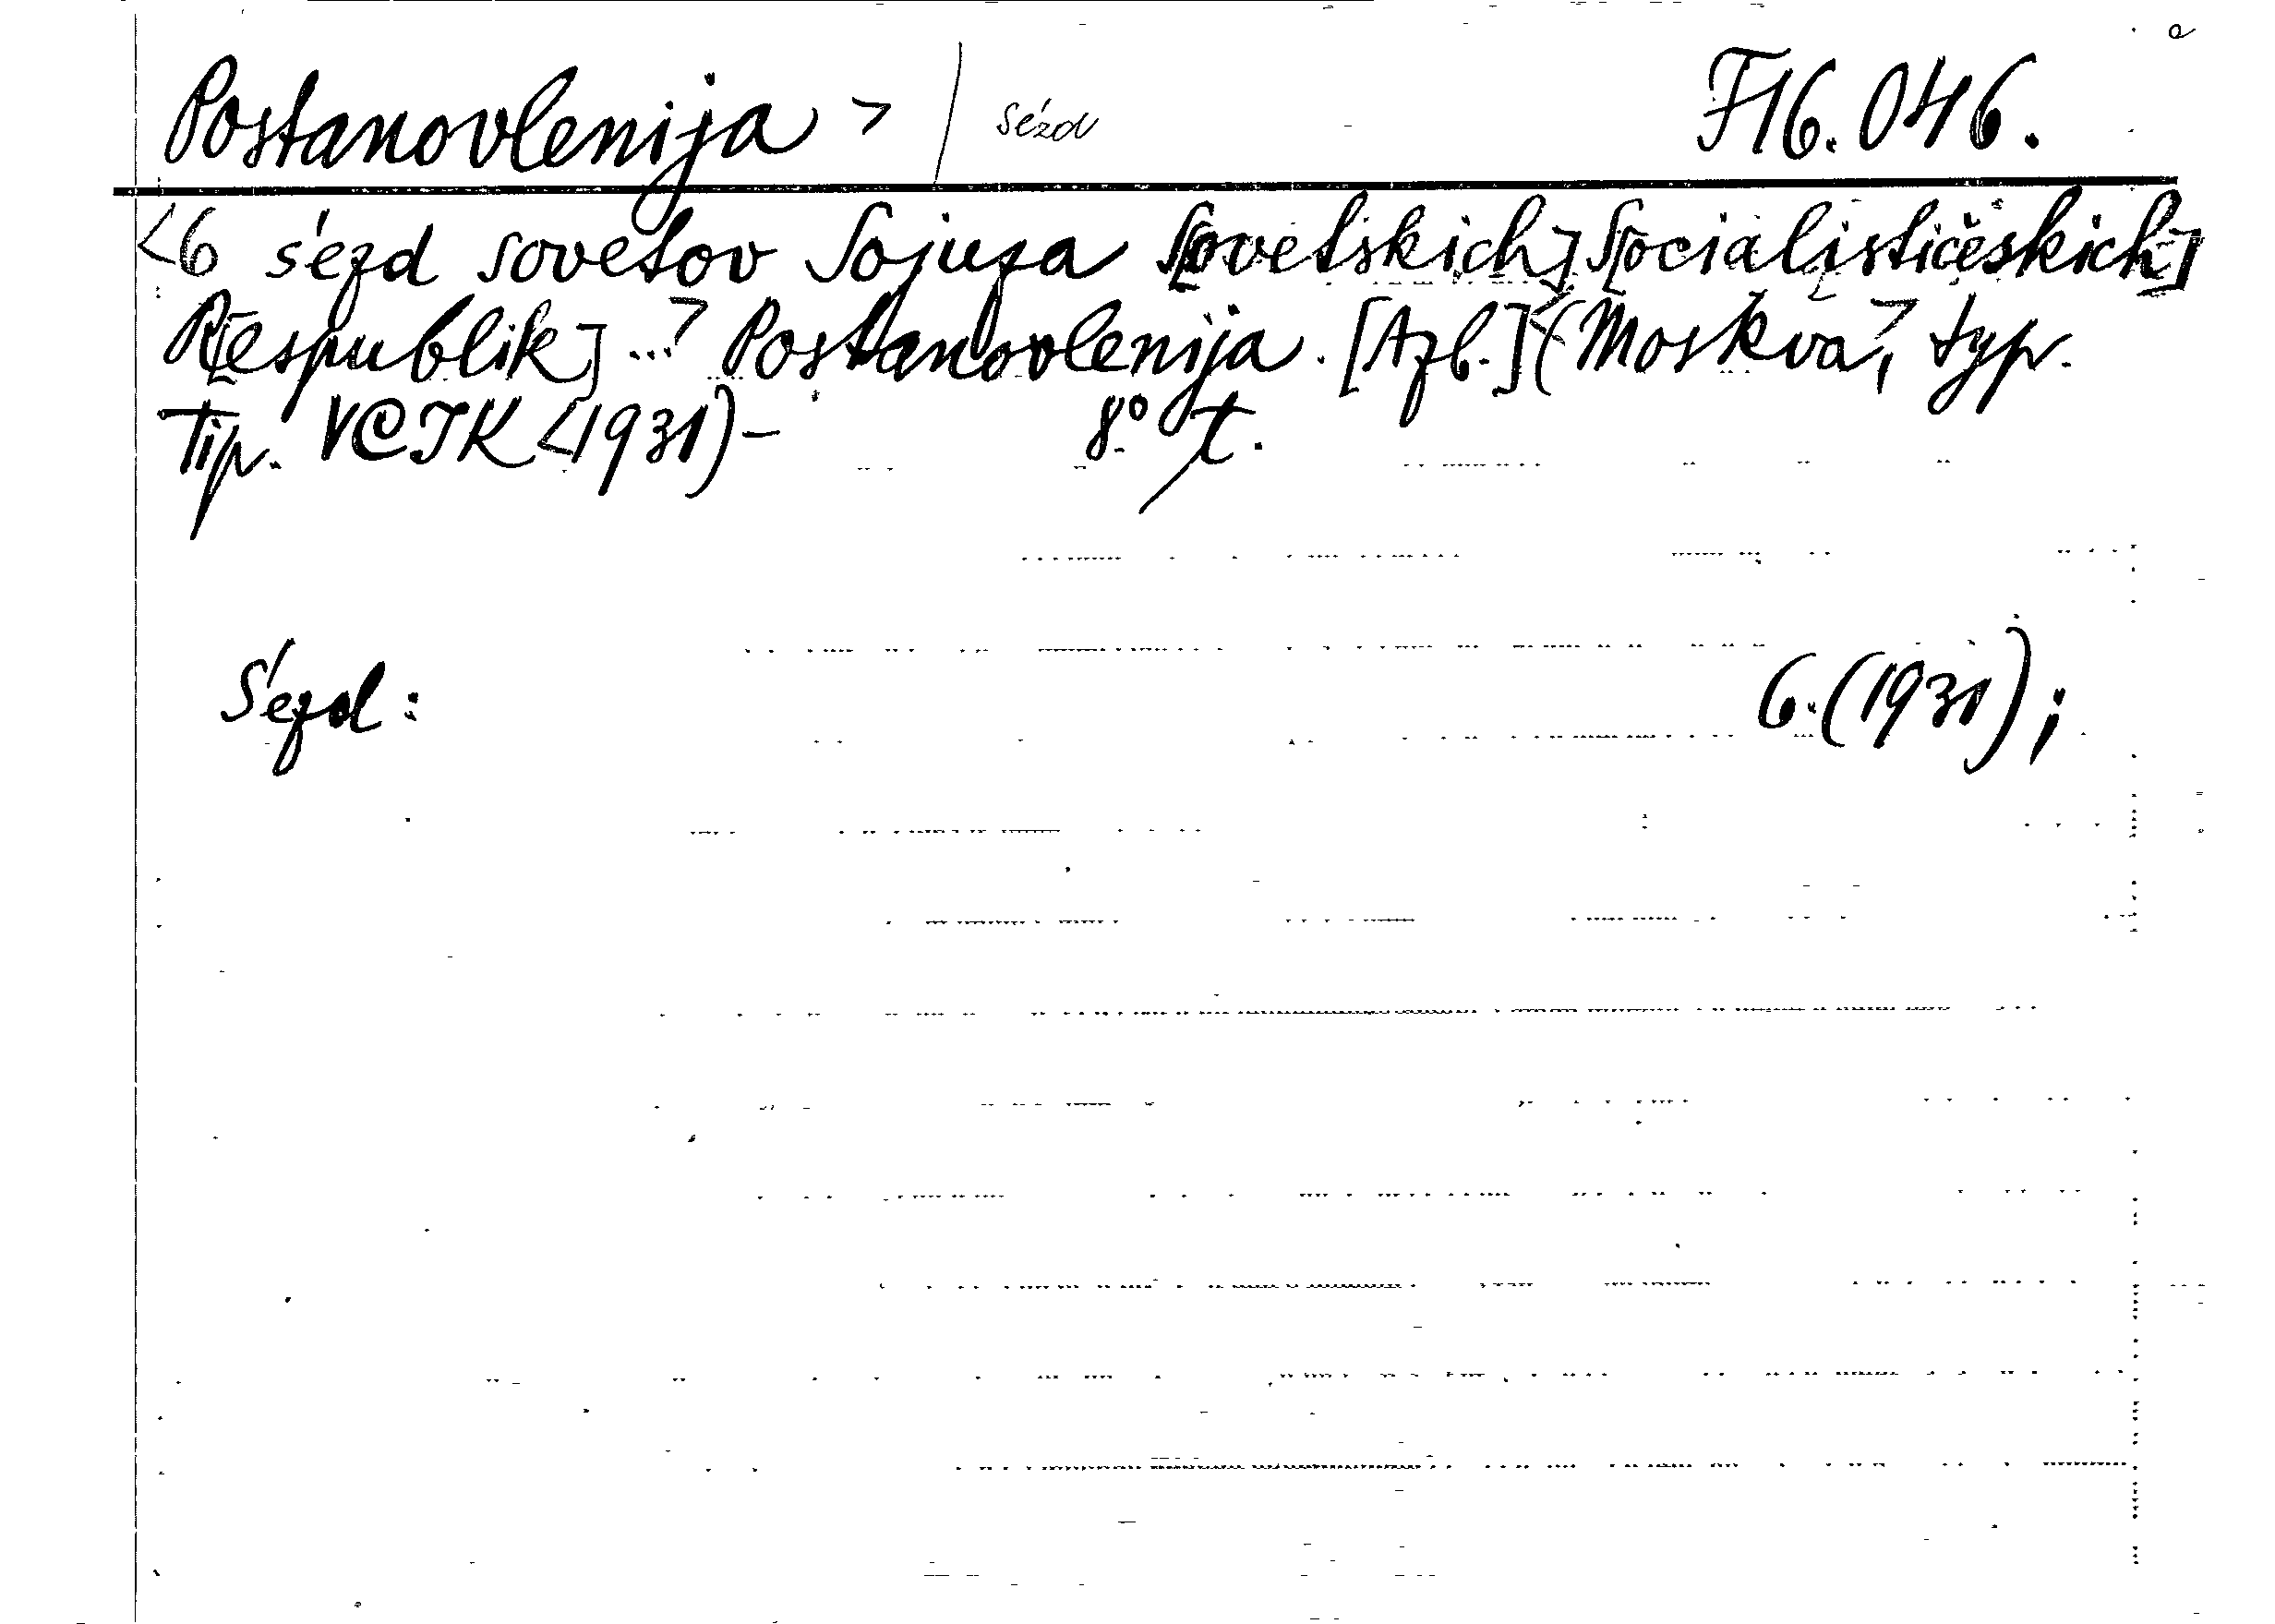 Postanovlenija > / s'ézd F 16.046.
<6 s'ezd sovetov Sojuza S[ovetskich] S[ocialističeskich]
R[espublik] ...> Postanovlenija. [Azb.] (<Moskva>, typ.
Tip. VCIK <1931)- 8° t.
S'ezd: 6.(1931);